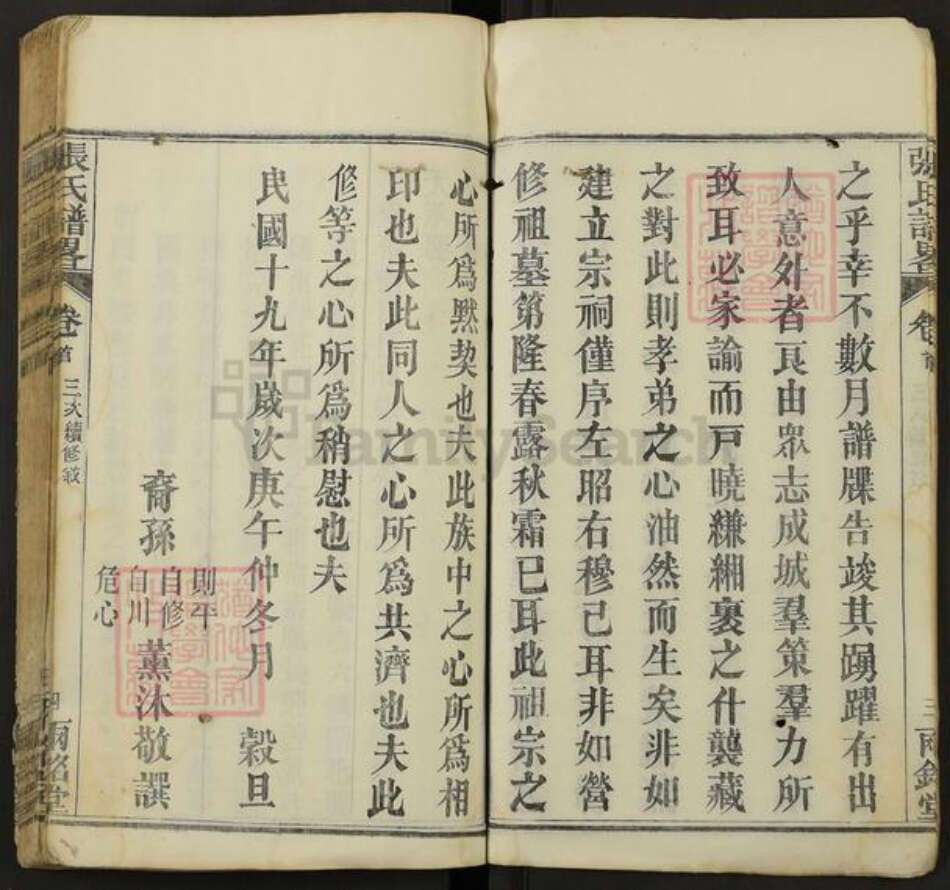 之乎幸不數月譜牒告竣其踴躍有出
人意外者亙由眾志成城羣策羣力所
致耳必家諭而戸曉縑緗裹之什襲藏
之對此則孝弟之心油然而生矣非如
建立宗祠僅序左昭右穆已耳非如營
修祖墓第隆春露秋霜巳耳此祖宗之
心所爲默契也夫此族中之心所爲相
印也夫此同人之心所爲共濟也夫此
修等之心所爲稍慰也夫
民國十九年歲次庚午仲冬月 穀旦
裔孫 則平 自修 自川 危心 薰沐敬譔
張氏譜畧 卷首 三 兩銘堂
張氏譜畧 卷首 三次續修敘 四 兩銘堂
FamilySearch